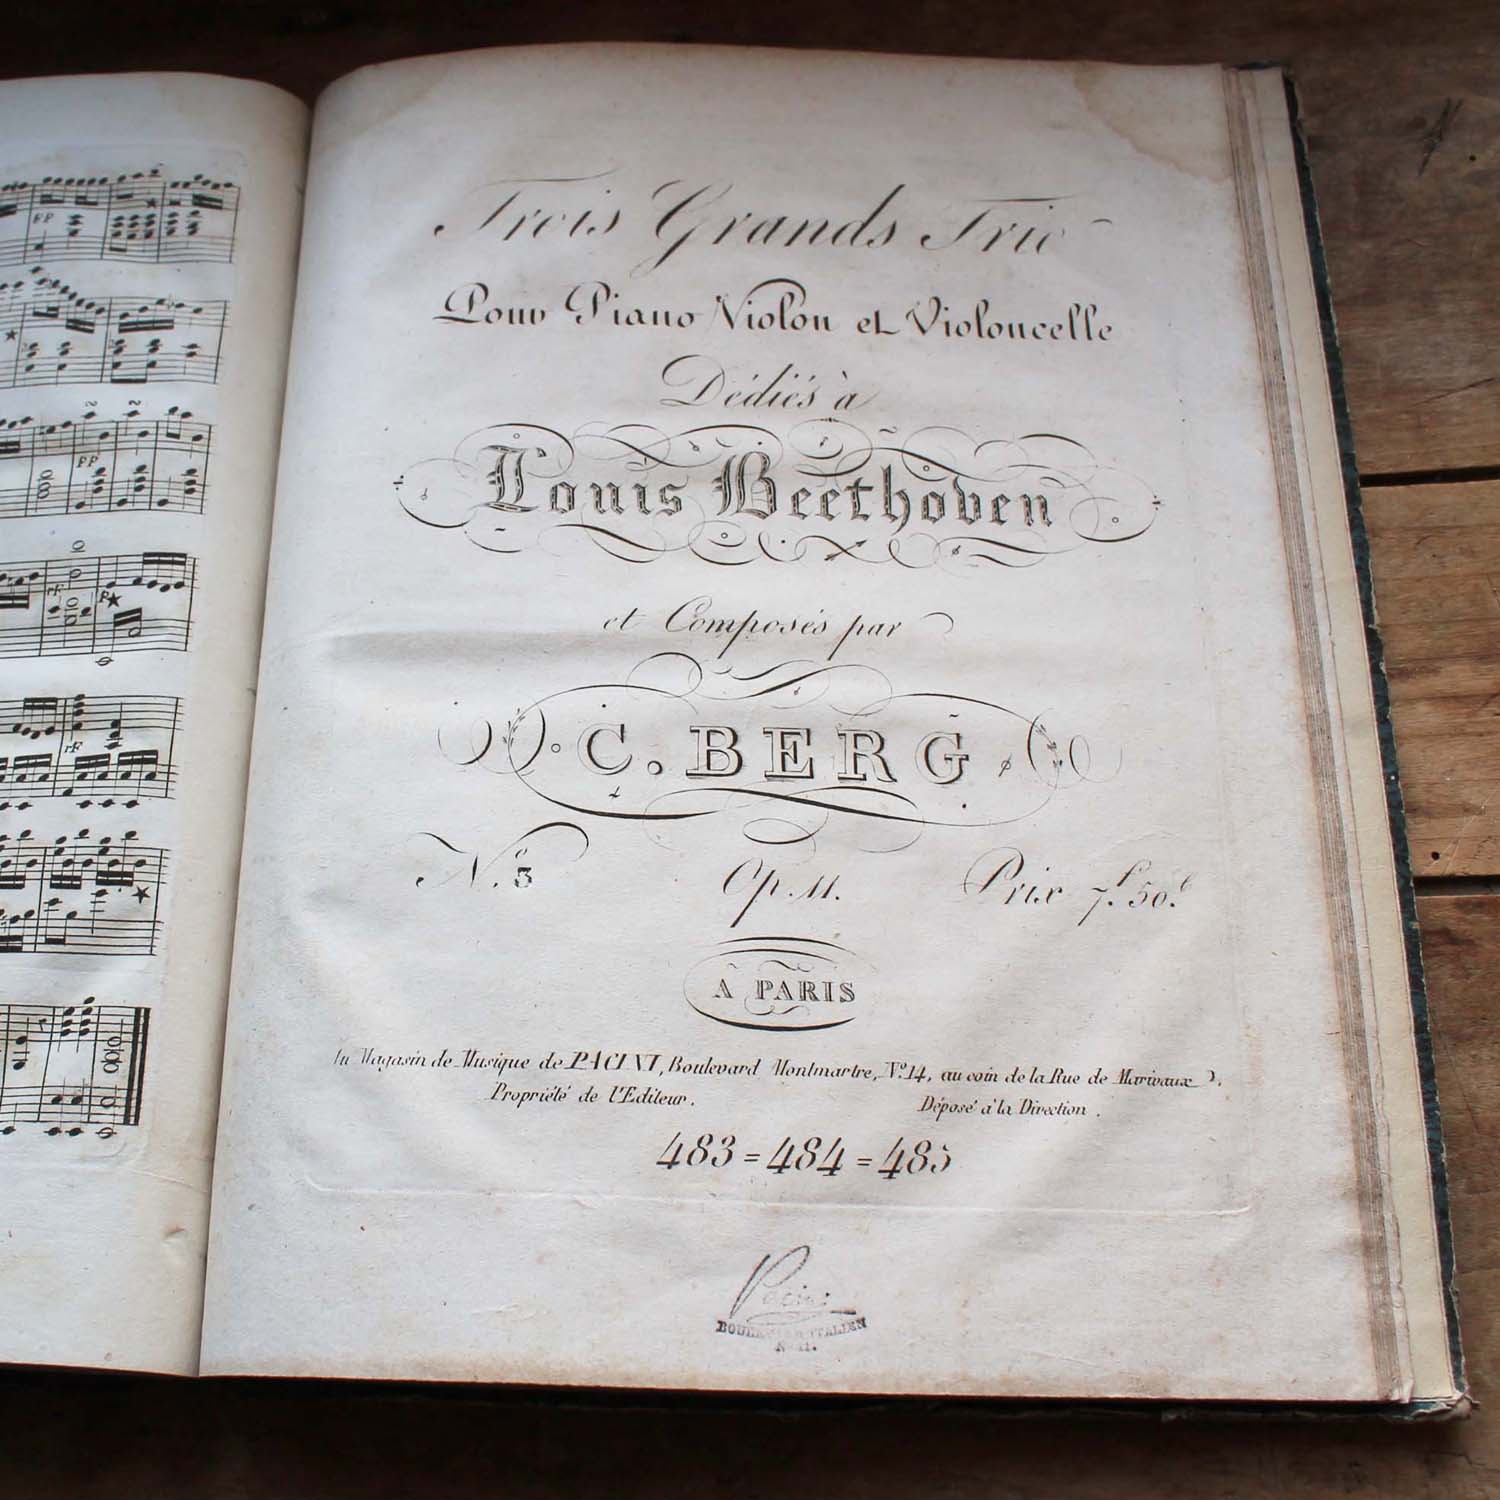 Trois Grands Trio
Pour Piano Violon et Violoncelle
Dédiés à
Louis Beethoven
et Composés par
C. BERG
N.º 3 Op. 11. Prix 7.f 50.c
A PARIS
Au Magasin de Musique de PACINI, Boulevard Montmartre, Nº 14, au coin de la Rue de Marivaux
Propriété de l'Editeur. Déposé à la Direction.
483 = 484 = 485
Pacini
N. 11.
PP
PP
rF P
rF